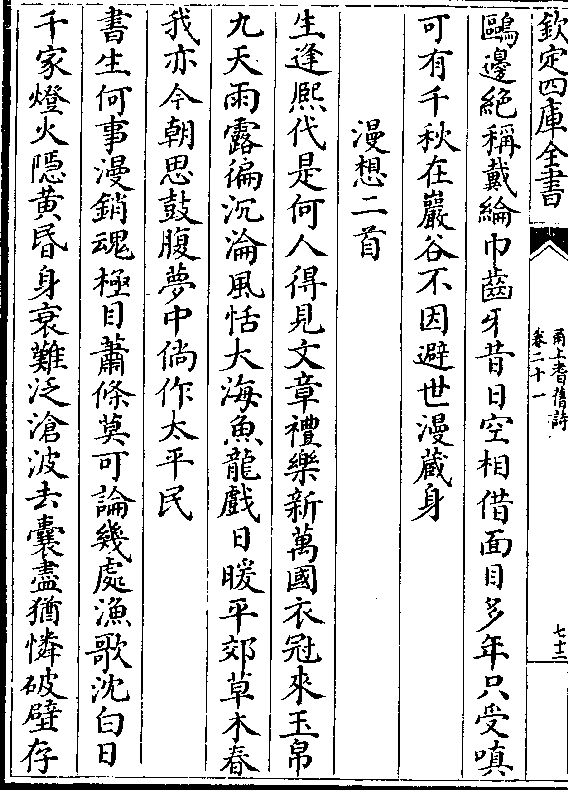 欽定四庫全書
甬上耆舊詩
卷二十一
七十二
鷗邊絶稱戴綸巾齒牙昔日空相借面目多年只受嗔
可有千秋在巖谷不因避世漫蔵身
漫想二首
生逢熙代是何人得見文章禮樂新萬國衣冠來玉帛
九天雨露徧沉淪風恬大海魚龍戲日暖平郊草木春
我亦今朝思鼓腹夢中倘作太平民
書生何事漫銷魂極目蕭條莫可論幾處漁歌沈白日
千家燈火隱黄昏身衰難泛滄波去囊盡猶憐破壁存